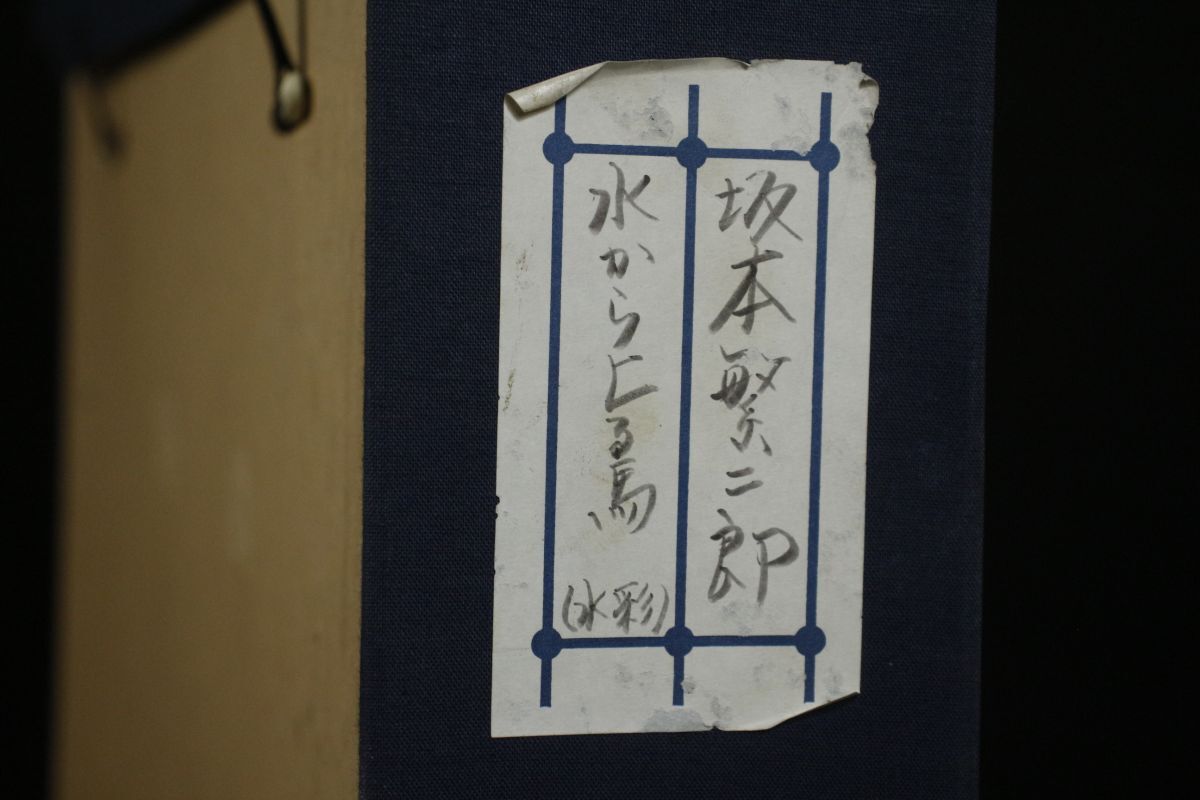 坂本繁二郎
水から上る馬
(水彩)